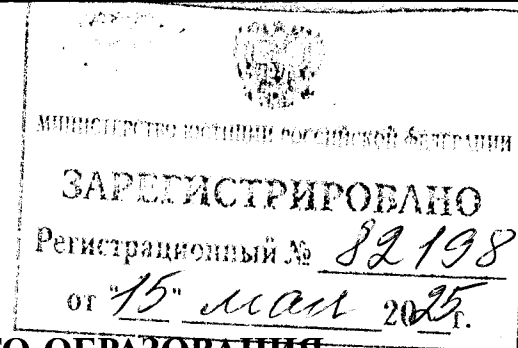 МИНИСТЕРСТВО ЮСТИЦИИ РОССИЙСКОЙ ФЕДЕРАЦИИ
ЗАРЕГИСТРИРОВАНО
Регистрационный № 82198
от "15" мая 2025г.
ОБРАЗОВАНИЯ